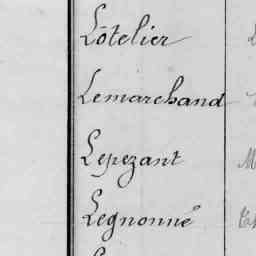 Lôtelier
Lemarchand
Lepezant
Legnonné